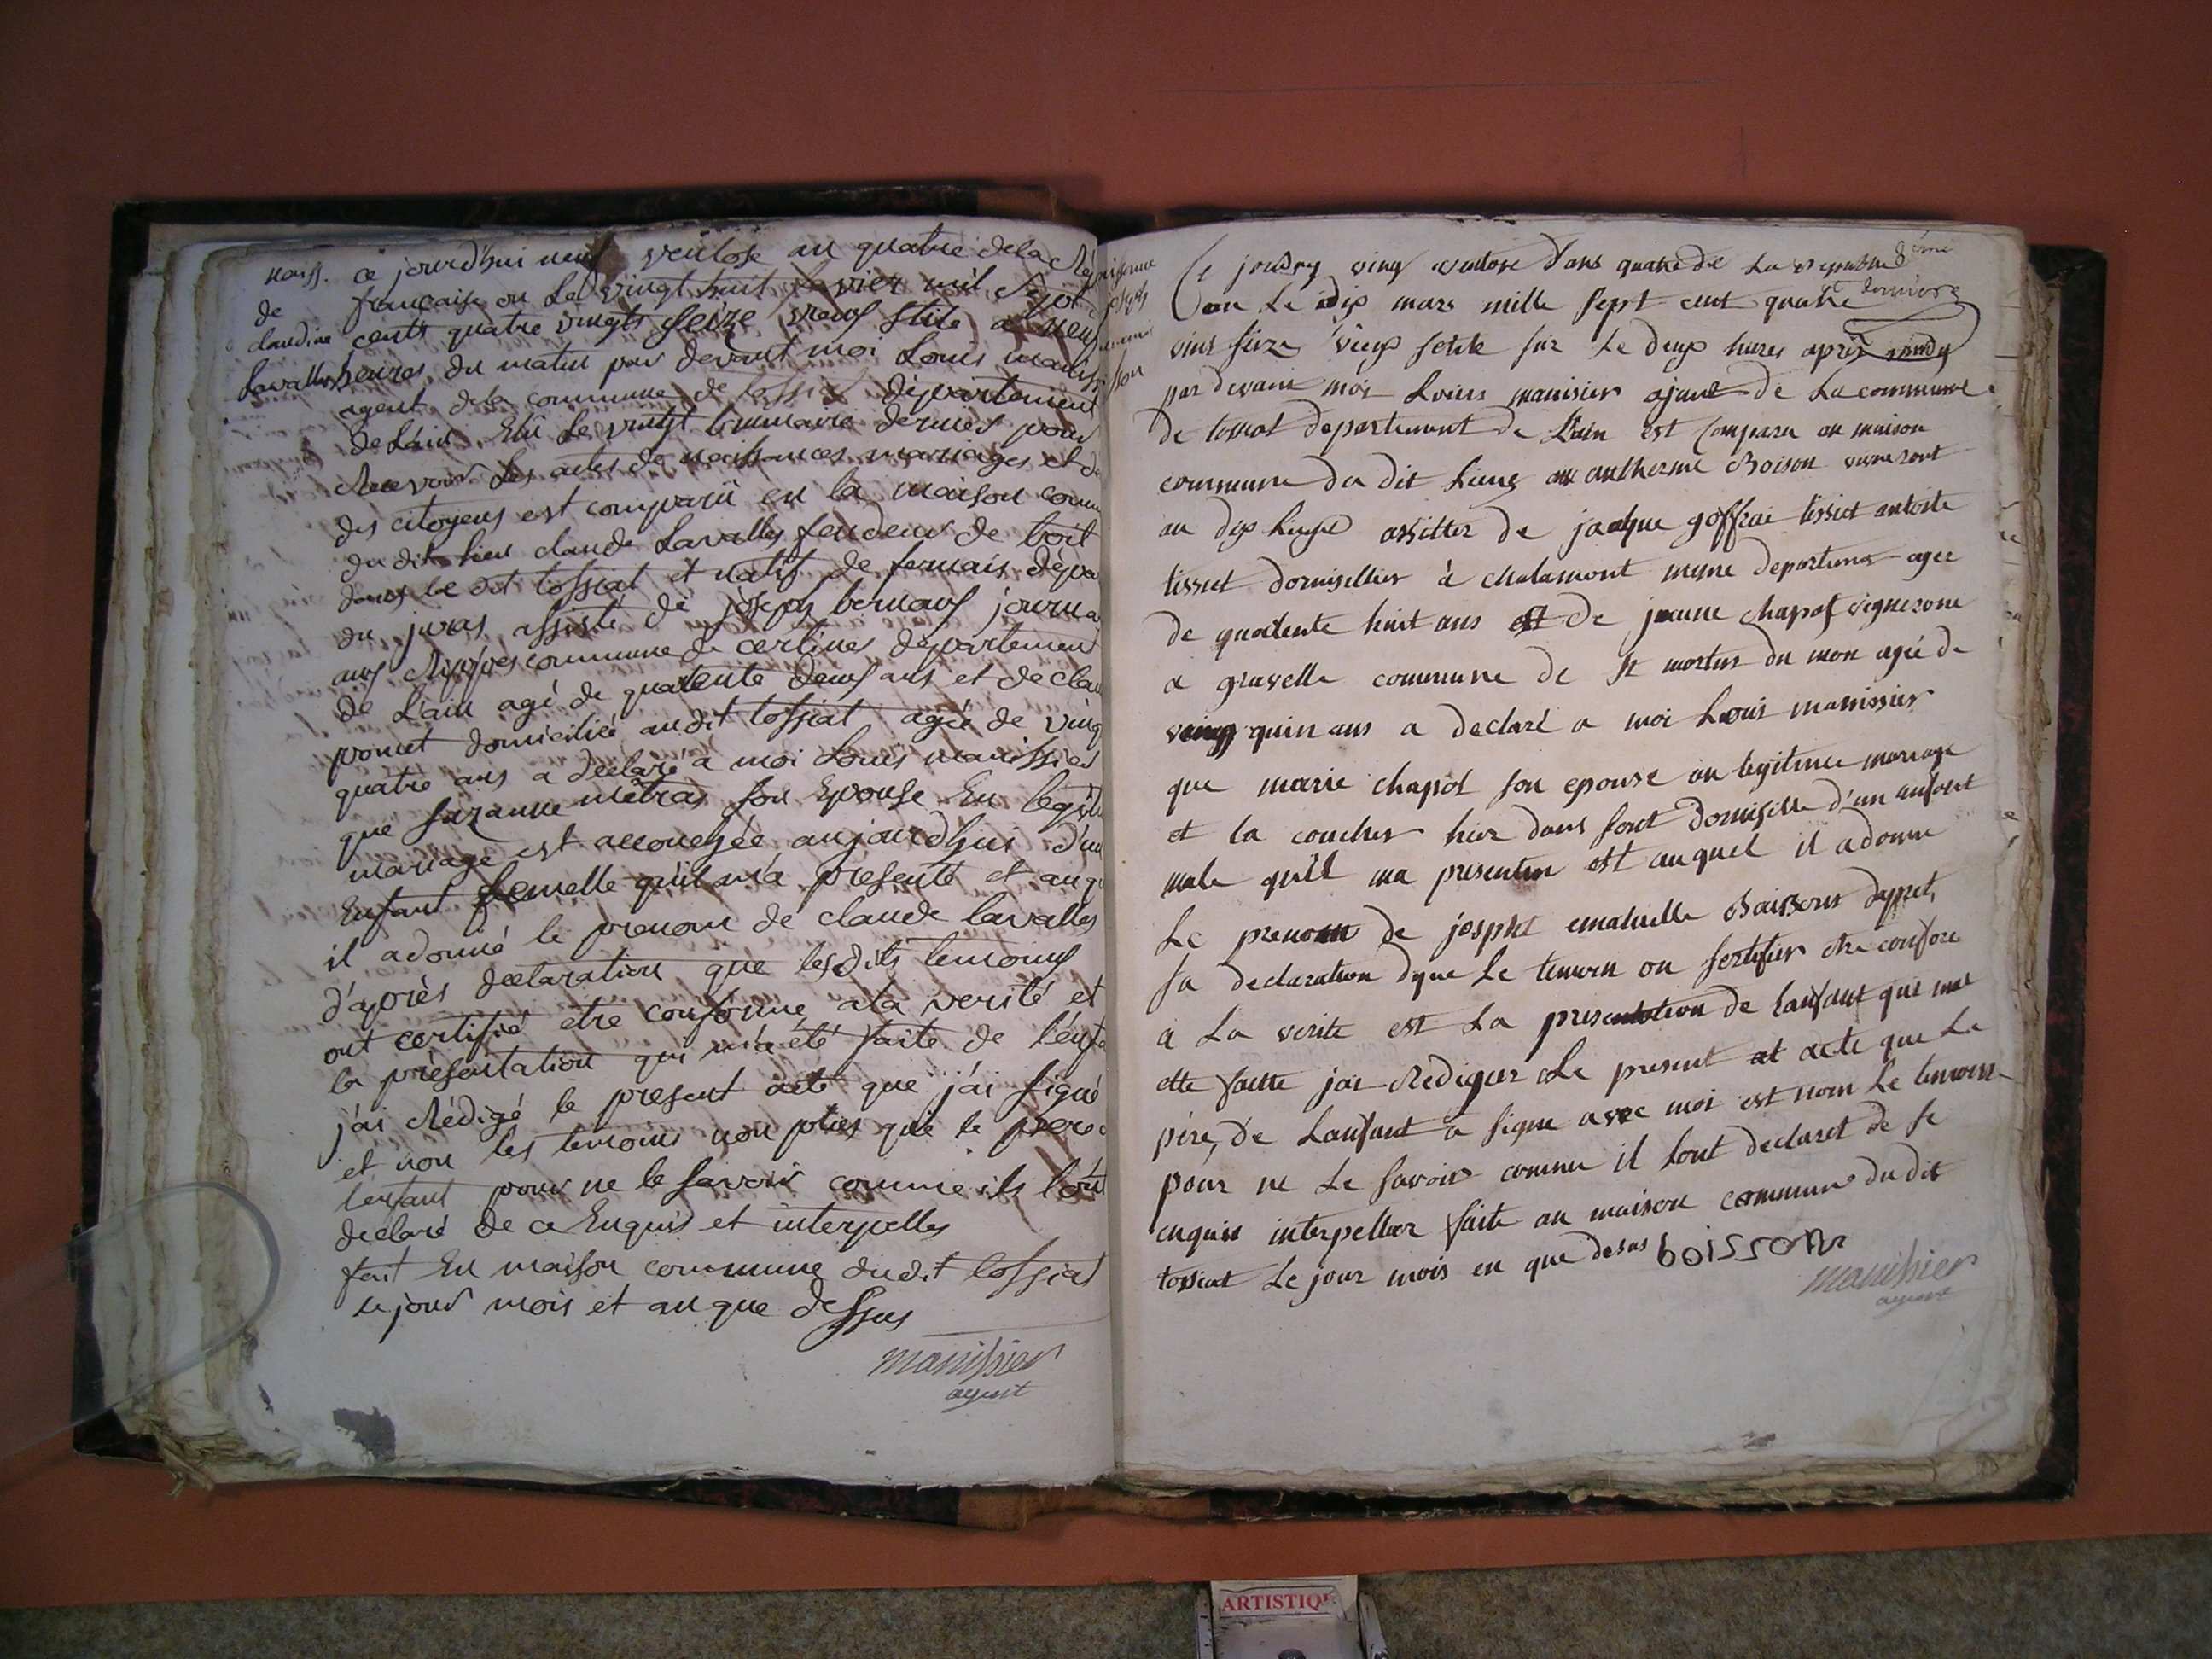 naiss.
de
claudine
Lavalles
ce jourd'hui neuf ventose an quatre dela Rép
française ou Le vingt huit favier mil Sept
cents quatre vingts Seize vieux Stile a neuf
heures du matin par devant moi Louis maniss
agent dela commune de tossiat département
de L'ain Elu Le vingt brumaire dernier pour
Recevoir Les actes de naissances mariages et de
des citoyens est comparü en la maison comm
du dit Lieu claude Lavalles fendeur de boit
dans le dit tossiat et natif de fernais dépa
du juras assisté de joseph bernant journa
aux Rippes commune de certines département
de L'ain agé de quarente deux ans et de clau
poncet domiciliée au dit tossiat agée de ving
quatre ans a déclaré a moi Louis manissier
que suzanne mêtras son Epouse En legiti
mariage est accouchée aujourd'hui d'un
Enfant femelle qu'il m'a presenté et auqu
il adonné le prenom de claude lavalles
d'après declaration que lesdits temoins
ont certifié etre conforme ala verité et
la présentation qui m'a été faite de l'enfa
j'ai Rédigé le present acte que j'ai signé
et non les temoins non plus que le pere d
lenfant pour ne le savoir comme ils l'ont
declaré de ce Enquis et interpelles
fait En maison commune dudit tossiat
le jour mois et an que dessus
manissier
agent
Ce jourduy ving ventose dans quatre de La Republi
ou Le dix mars mille sept cent quatre
vins seize vieux setile sur Le deux hures après mydy
par devant moi Louis manisier ajant de La commune
de tossiat departement de L'ain est Comparu an maison
commune du dit Lieux antherme Boison vigneront
au dix Lieux assitter de jacque goffrai tissict
tissict domisellier à chalamont meme departement agee
de quarente huit ans est de jeanne chapot vignerone
a gravelle commune de st martin du mon agée de
ving quin ans a declaré a moi Louis manissier
que marie chapot son epouse an legitime mariage
et la coucher hier dans sont domiselle d'un anfant
male qu'il ma presenter est auquel il adonne
Le prenom de josphet emaluelle Boissons dapret
sa declaration dque Le temoin on sertifier etre confore
a La verite est La presentation de Lanfant qui mat
ette faitte jai Rediger Le present at acte que Le
père, de Lanfant a signe avec moi est nom Le temoin
pour ne Le savoir comme il Lont declaret de se
enquis interpeller faite an maison commune du dit
tossiat Le jour mois en que desus boisson
manissier
agent